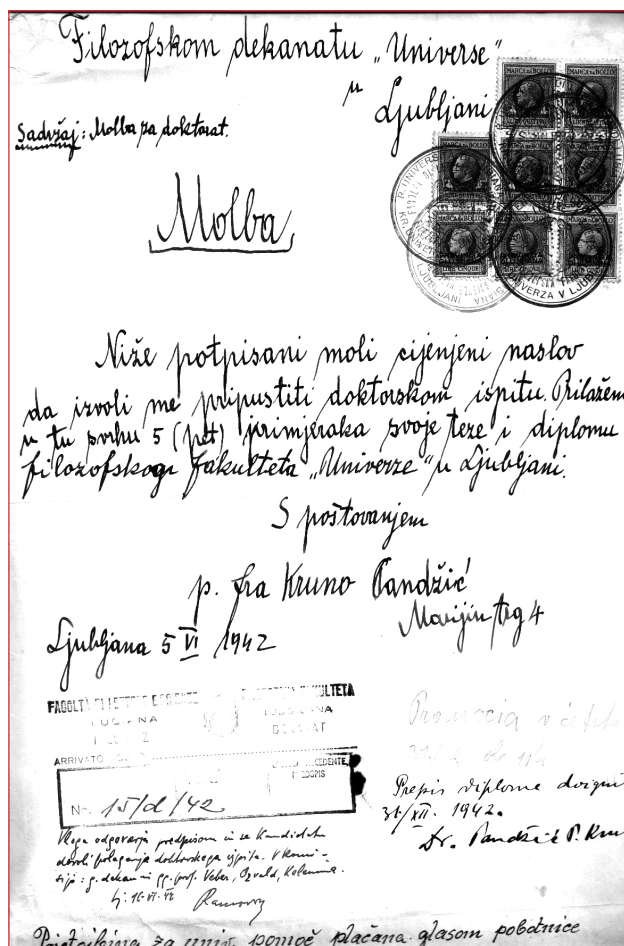 Filozofskom dekanatu „Universe"
u
Ljubljani
Sadržaj: Molba za doktorat.
Molba
Niže potpisani moli cijenjeni naslov
da izvoli me pripustiti doktorskom ispitu. Prilažem
u tu svrhu 5 (pet) primjeraka svoje teze i diplomu
filozofskog fakulteta „Univerze" u Ljubljani.
S poštovanjem
p. fra Kruno Pandžić
Marijin trg 4
Ljubljana 5 VI 1942
MARCA DA BOLLO
MARCA DA BOLLO
UNIVERZA V LJUBLJANI
FACOLTÀ DI LETTERE
LUBIANA
ARRIVATO
No. 15/d/42
Vloga odgovarja predpisom in se kandidatu
dovoli polaganje doktorskega izpita. V komi-
siji: g. dekan in gg. prof. Veber, Ozvald, Kelemina.
Lj. 16. VI. 42
Promocija v četrtek
Prepis diplome dvignil
31/XII. 1942.
Dr. Pandžić P. Kruno
Pristojbina za univ. pomoč plačana glasom pobotnice